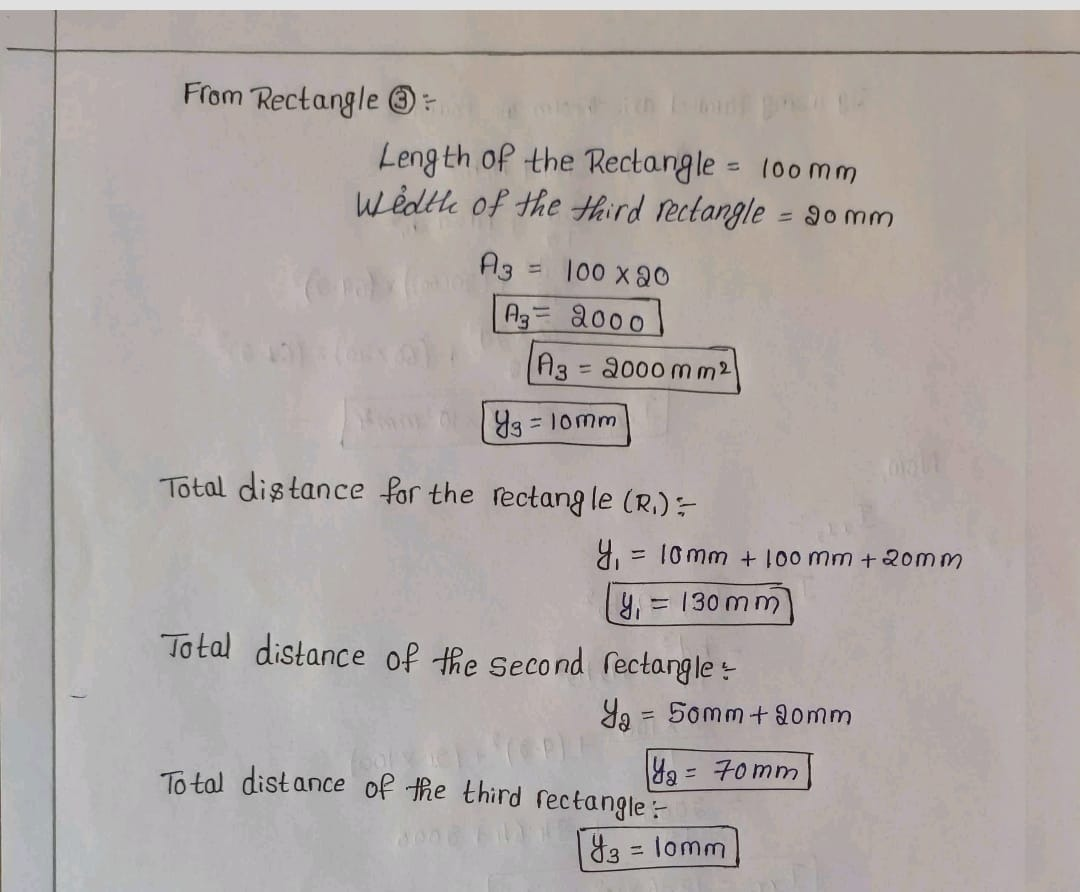 From Rectangle ③ :-
Length of the Rectangle = 100 mm
Width of the third rectangle = 20 mm
A₃ = 100 x 20
A₃ = 2000
A₃ = 2000 mm²
y₃ = 10mm
Total distance for the rectangle (R₁) :-
y₁ = 10mm + 100 mm + 20mm
y₁ = 130 mm
Total distance of the second rectangle :-
y₂ = 50mm + 20mm
y₂ = 70 mm
Total distance of the third rectangle :-
y₃ = 10mm